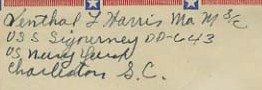 Venthal L Harris Mo M 3/C
U S S Sigourney DD-643
US Navy Yard
Charleston S.C.